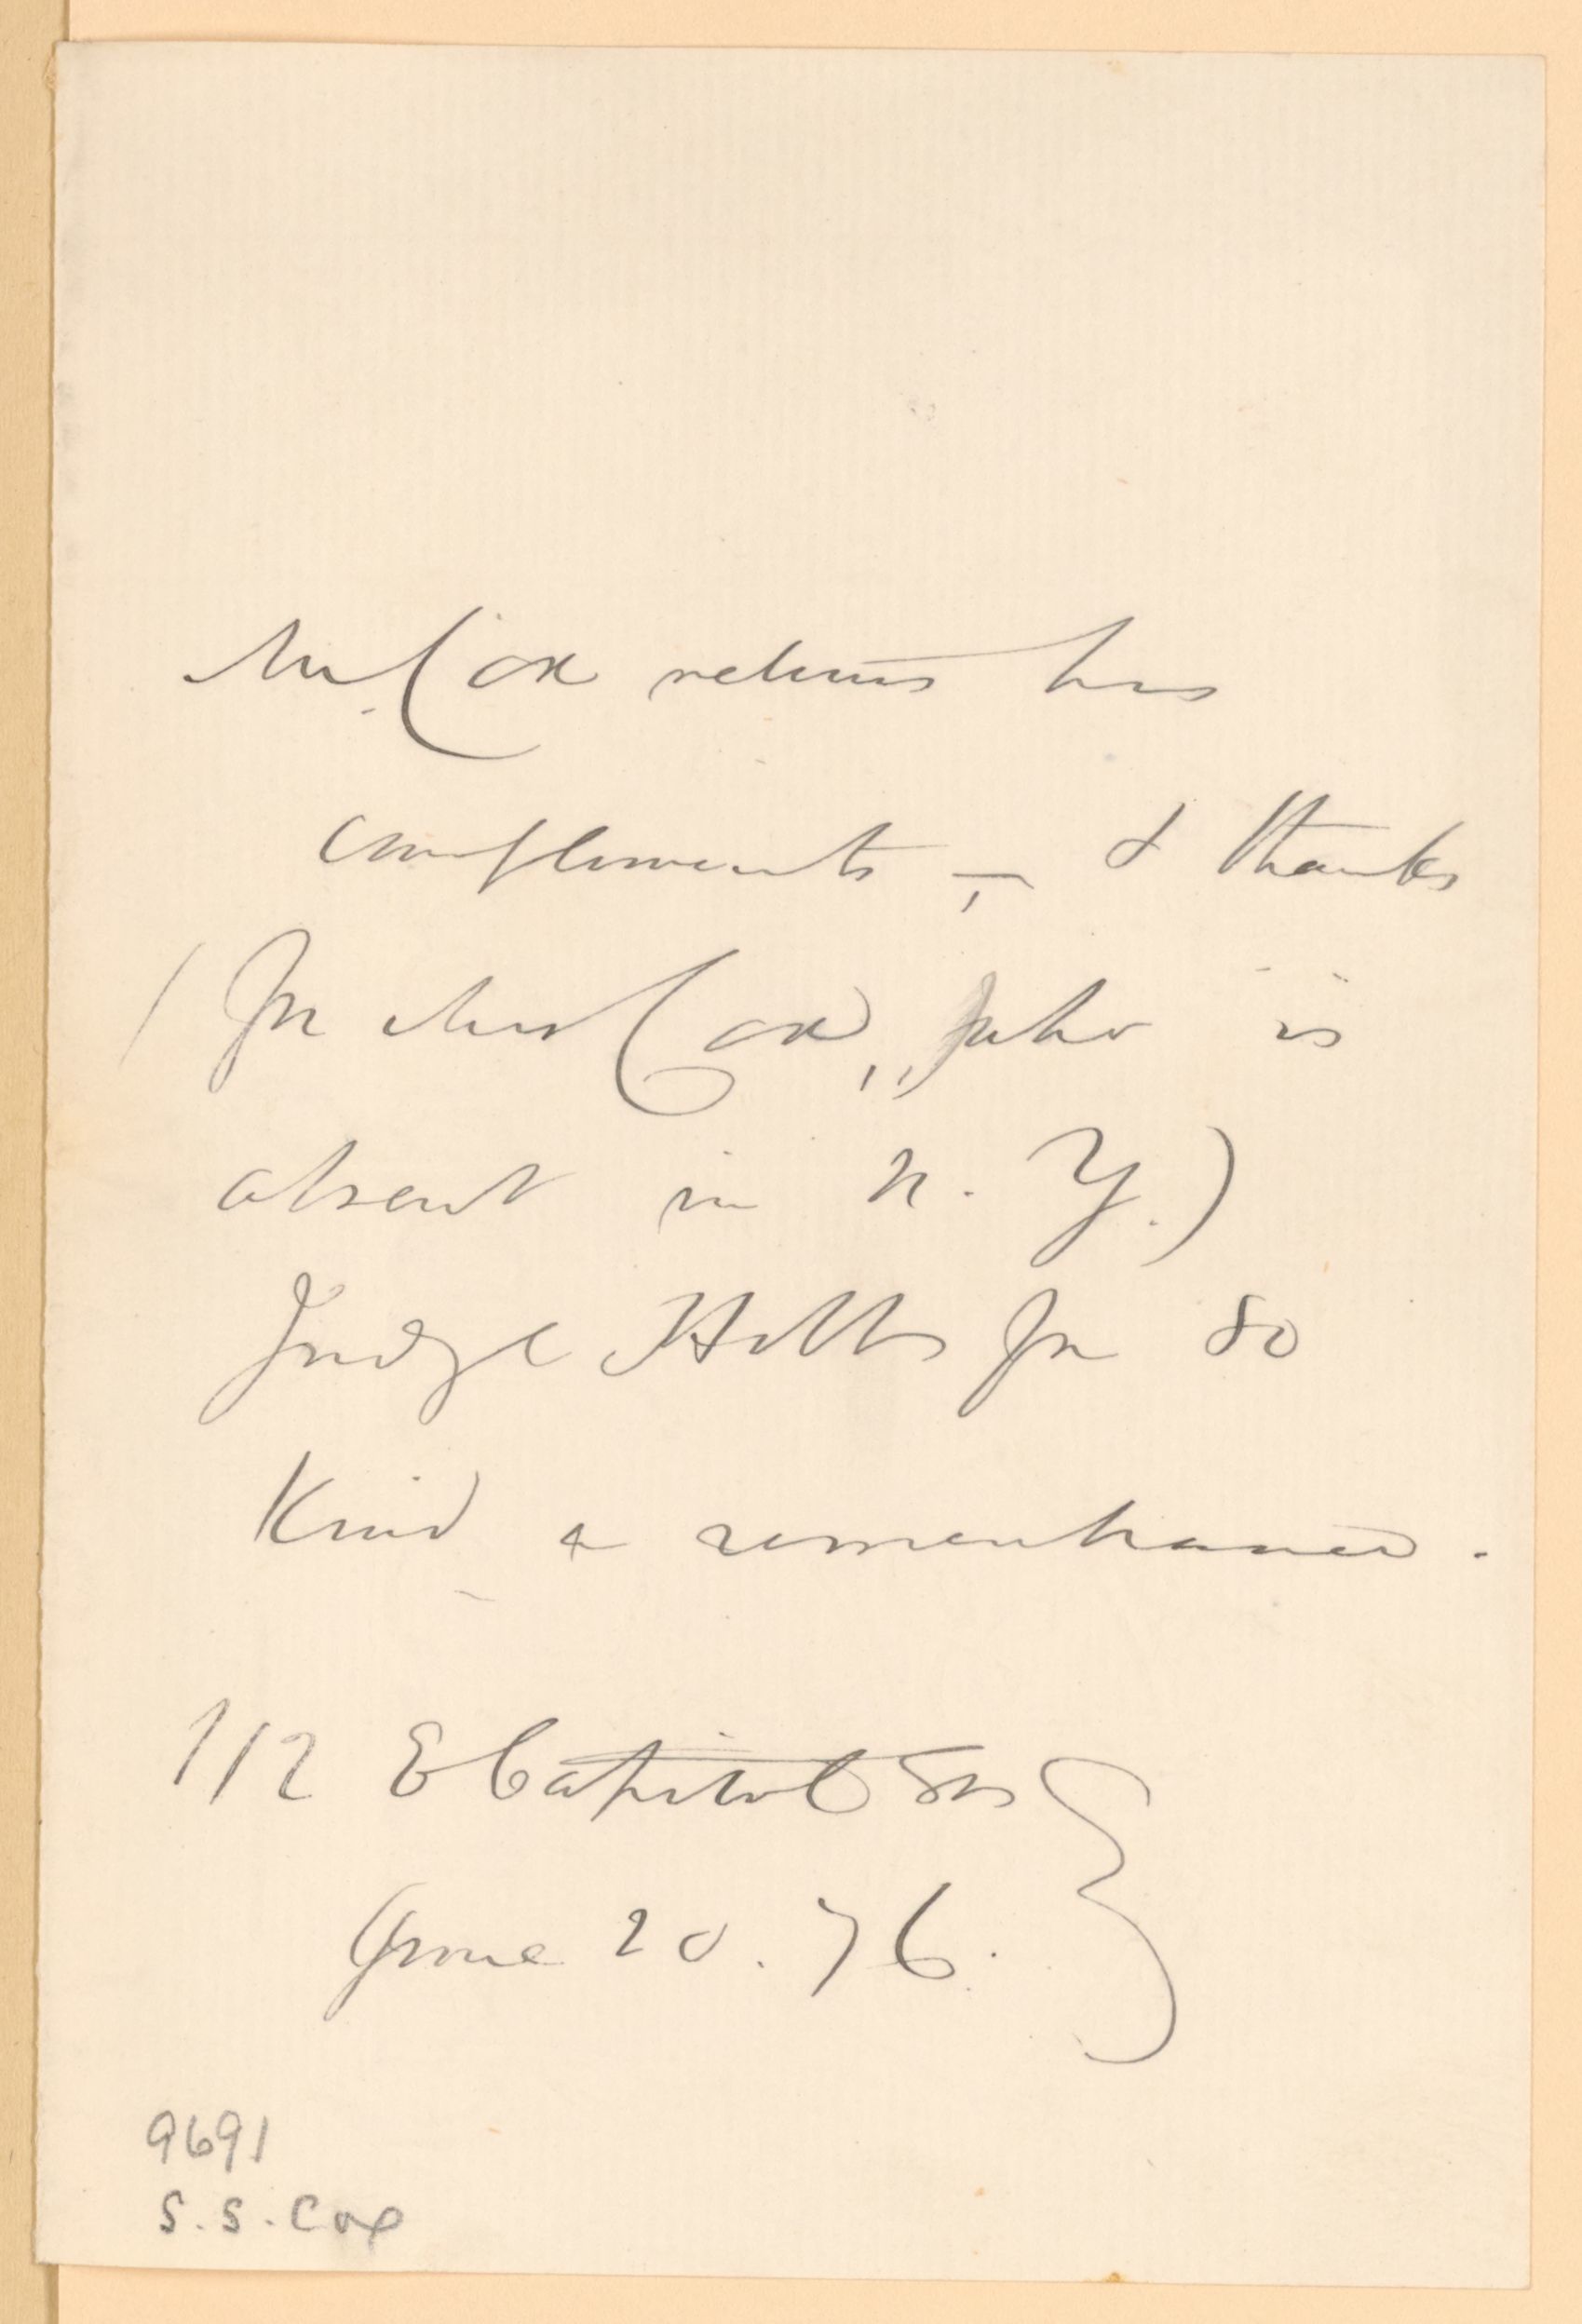 Mr. Cox returns his
compliments — & thanks
(for Mrs Cox, who is
absent in N. Y.)
Judge Holt for so
kind a remembrance.
112 E Capitol
June 20. 76.
9691
S. S. Cox